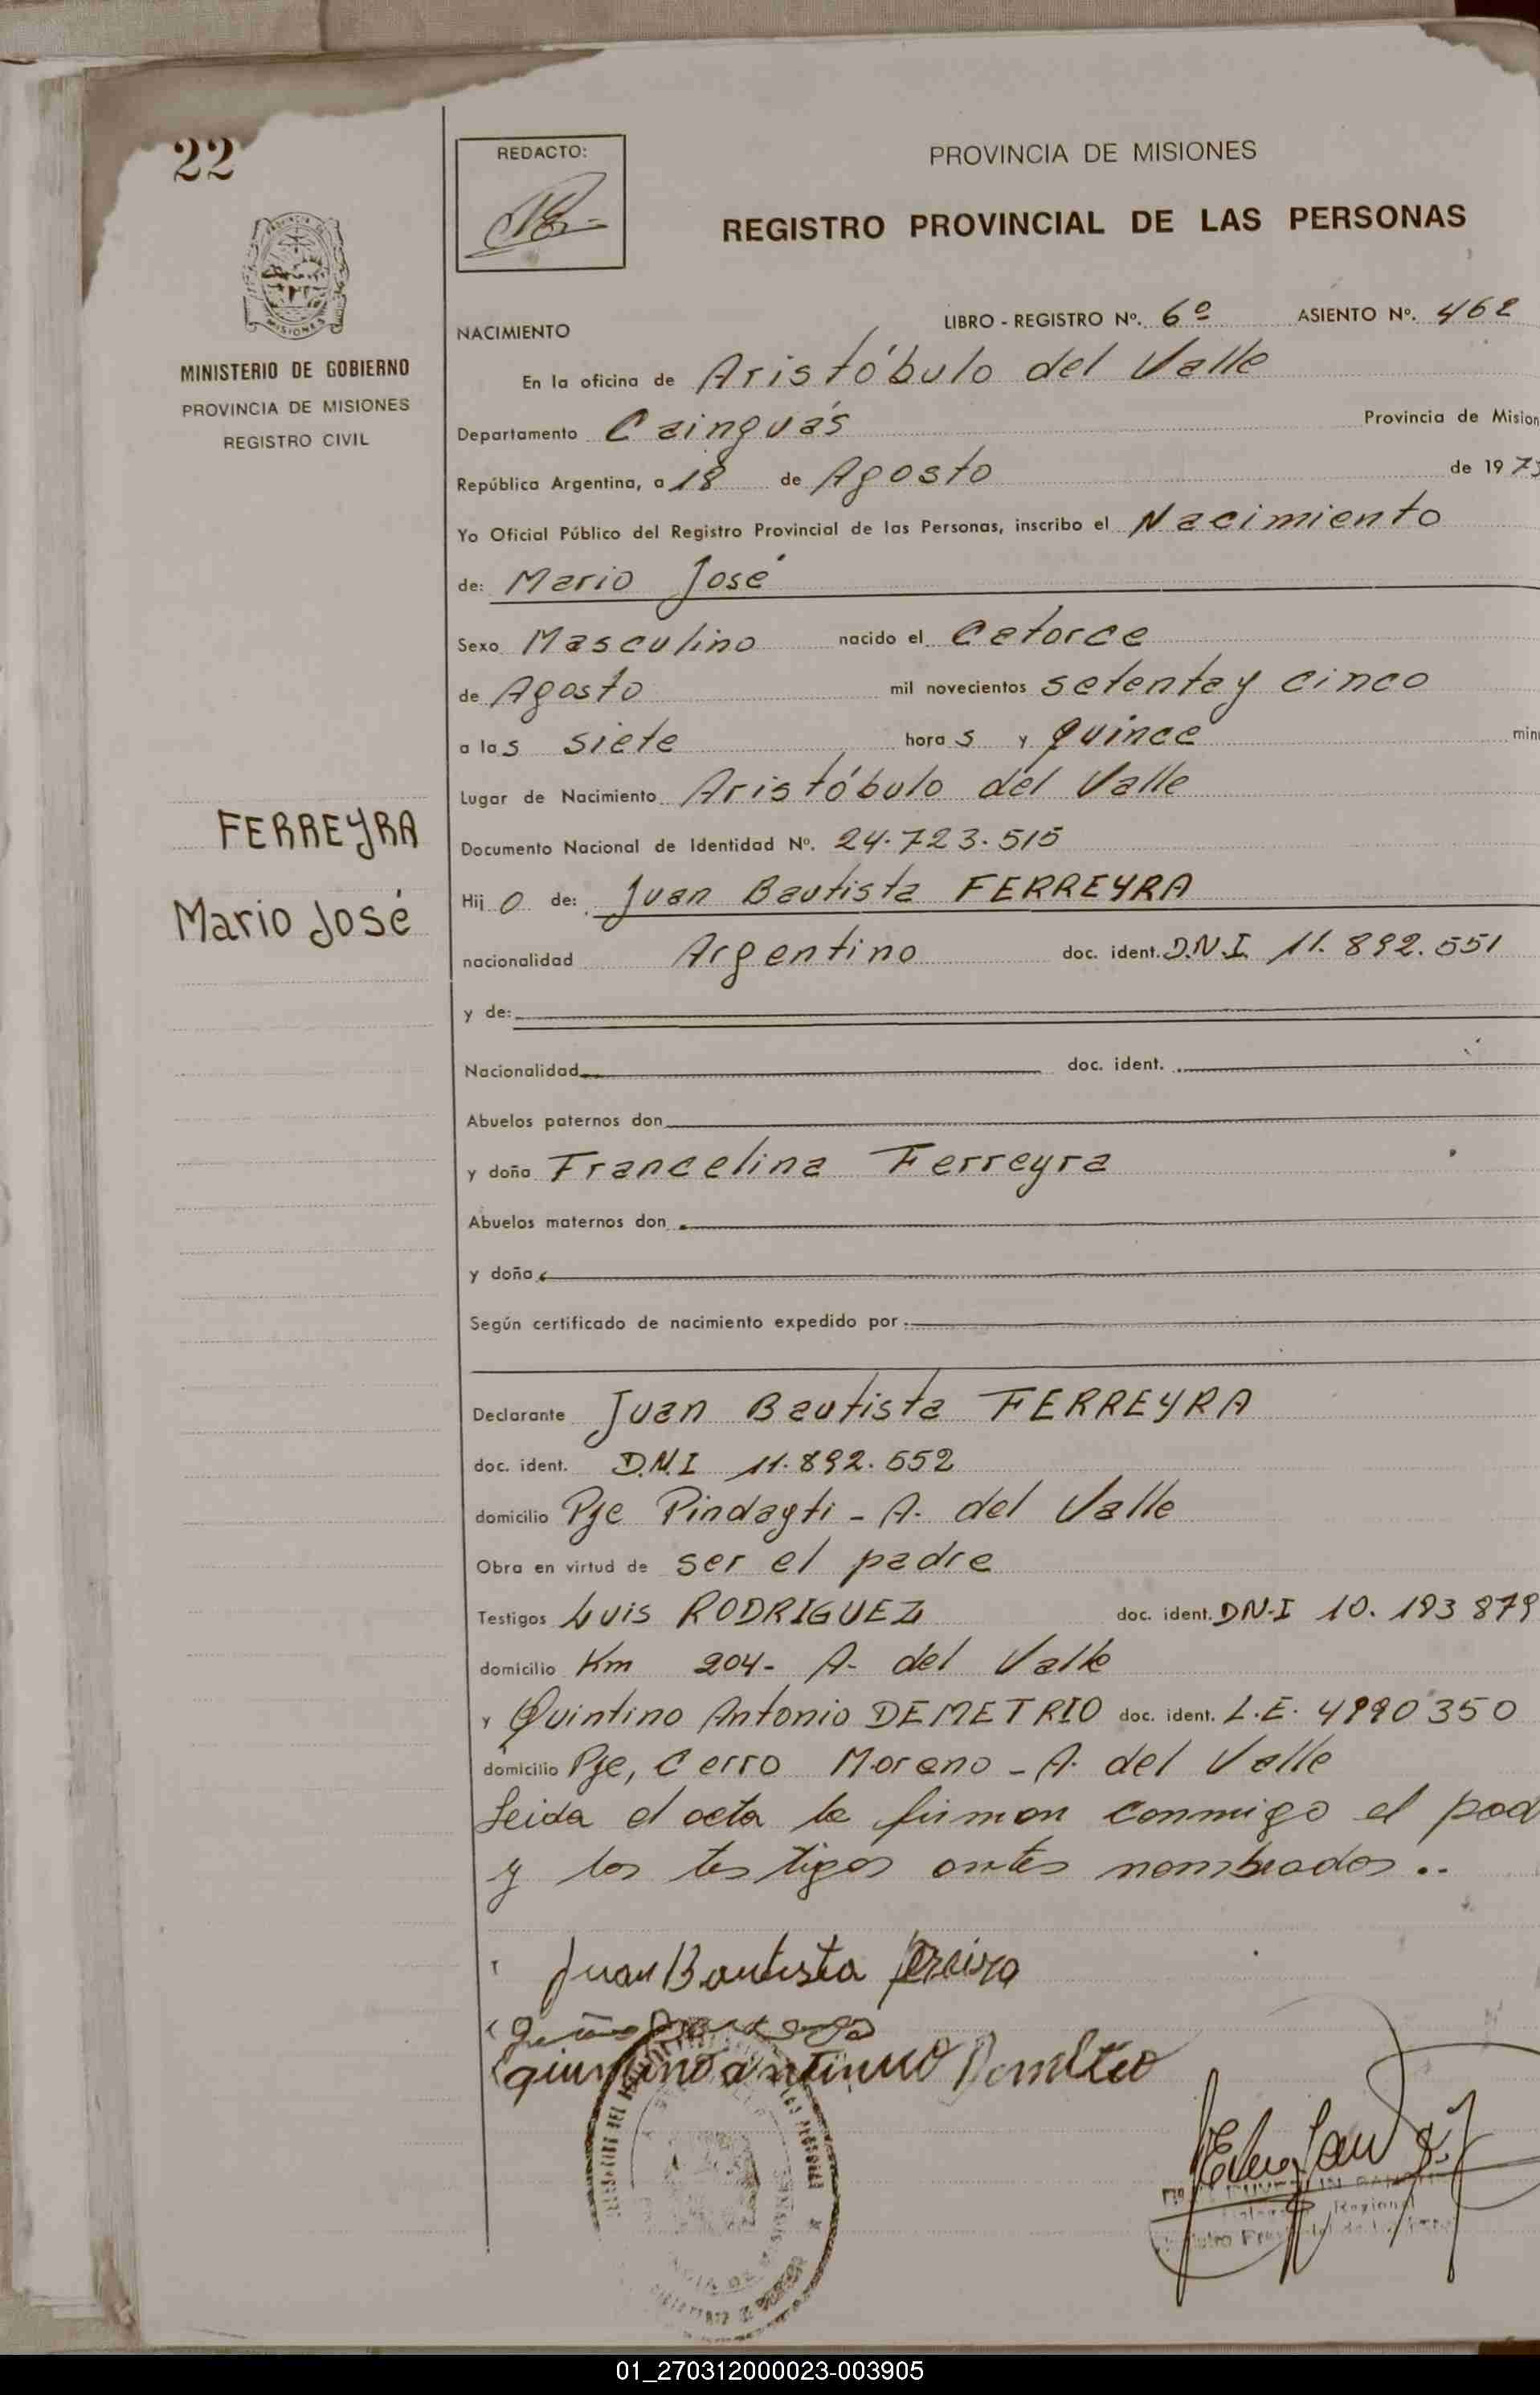 22
REDACTO:
PROVINCIA DE MISIONES
REGISTRO PROVINCIAL DE LAS PERSONAS
MISIONES
MINISTERIO DE GOBIERNO
PROVINCIA DE MISIONES
REGISTRO CIVIL
NACIMIENTO
LIBRO - REGISTRO Nº. 6º ASIENTO Nº. 462
En la oficina de Aristóbulo del Valle
Departamento Cainguás Provincia de Mision
República Argentina, a 18 de Agosto de 197
Yo Oficial Público del Registro Provincial de las Personas, inscribo el Nacimiento
de: Mario José
Sexo Masculino nacido el Catorce
de Agosto mil novecientos setenta y cinco
a las siete horas y quince min
Lugar de Nacimiento Aristóbulo del Valle
FERREYRA
Mario José
Documento Nacional de Identidad Nº. 24.723.515
Hijo de: Juan Bautista FERREYRA
nacionalidad Argentino doc. ident. D.N.I. 11.892.551
y de:
Nacionalidad doc. ident.
Abuelos paternos don
y doña Francelina Ferreyra
Abuelos maternos don
y doña
Según certificado de nacimiento expedido por
Declarante Juan Bautista FERREYRA
doc. ident. D.N.I 11.892.552
domicilio Pje Pindayti - A. del Valle
Obra en virtud de ser el padre
Testigos Luis RODRIGUEZ doc. ident. DN.I 10.193 879
domicilio Km 204- A- del Valle
y Quintino Antonio DEMETRIO doc. ident. L.E. 4990350
domicilio Pje, Cerro Moreno - A. del Valle
Leida el acta la firman conmigo el pad
y los testigos antes nombrados..
Juan Bautista Pereira
01_270312000023-003905